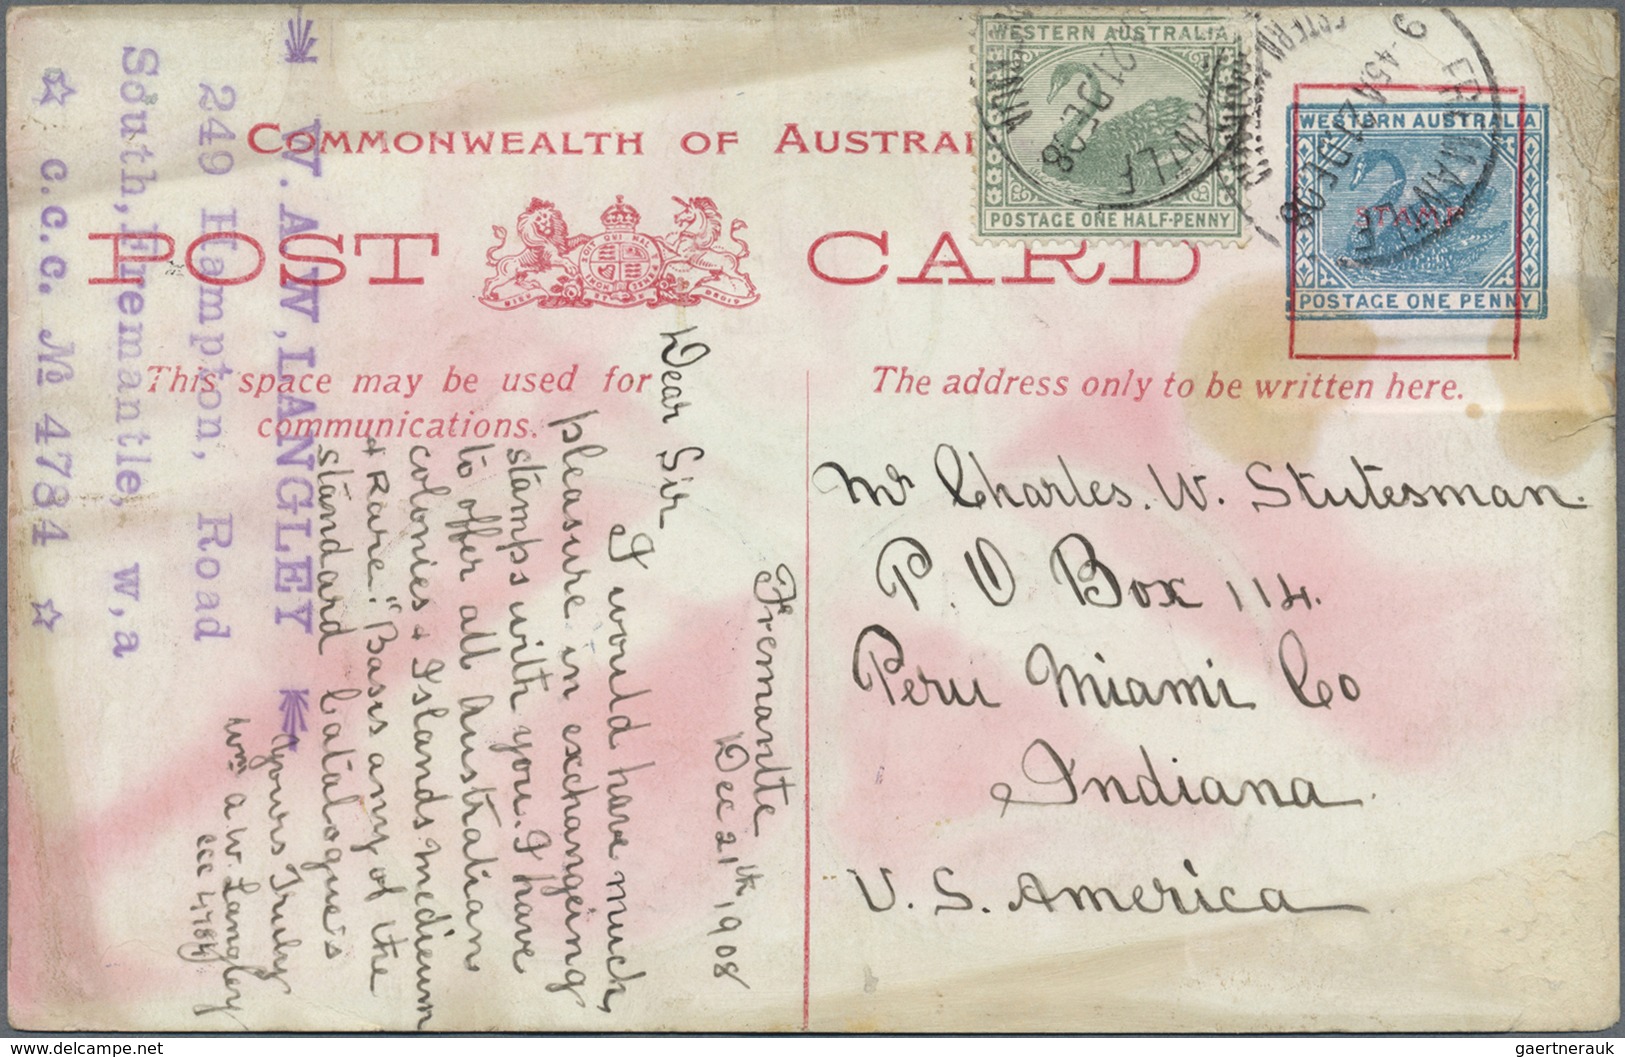 COMMONWEALTH OF AUSTRA
POST CARD
DIEU ET MON DROIT
This space may be used for
communications.
The address only to be written here.
WESTERN AUSTRALIA
POSTAGE ONE HALF-PENNY
WESTERN AUSTRALIA
STAMP
POSTAGE ONE PENNY
21 DE 08
FREMANTLE
9-45A 21 DE 08
W. A W, LANGLEY
249 Hampton, Road
South, Fremantle, w,a
☆ C.C.C. № 4784 ☆
Fremantle
Dec 21th 1908
Dear Sir
I would have much,
pleasure in exchangeing
stamps with you. I have
to offer all Australian
colonies & Islands medieum
& Rare." Basis any of the
standard Catalogue's
Yours Truly
Wm a W. Langley
ccc 4784
Mr Charles. W. Stutesman.
P. O Box 114.
Peru Miami Co
Indiana.
U. S. America
gaertnerauk